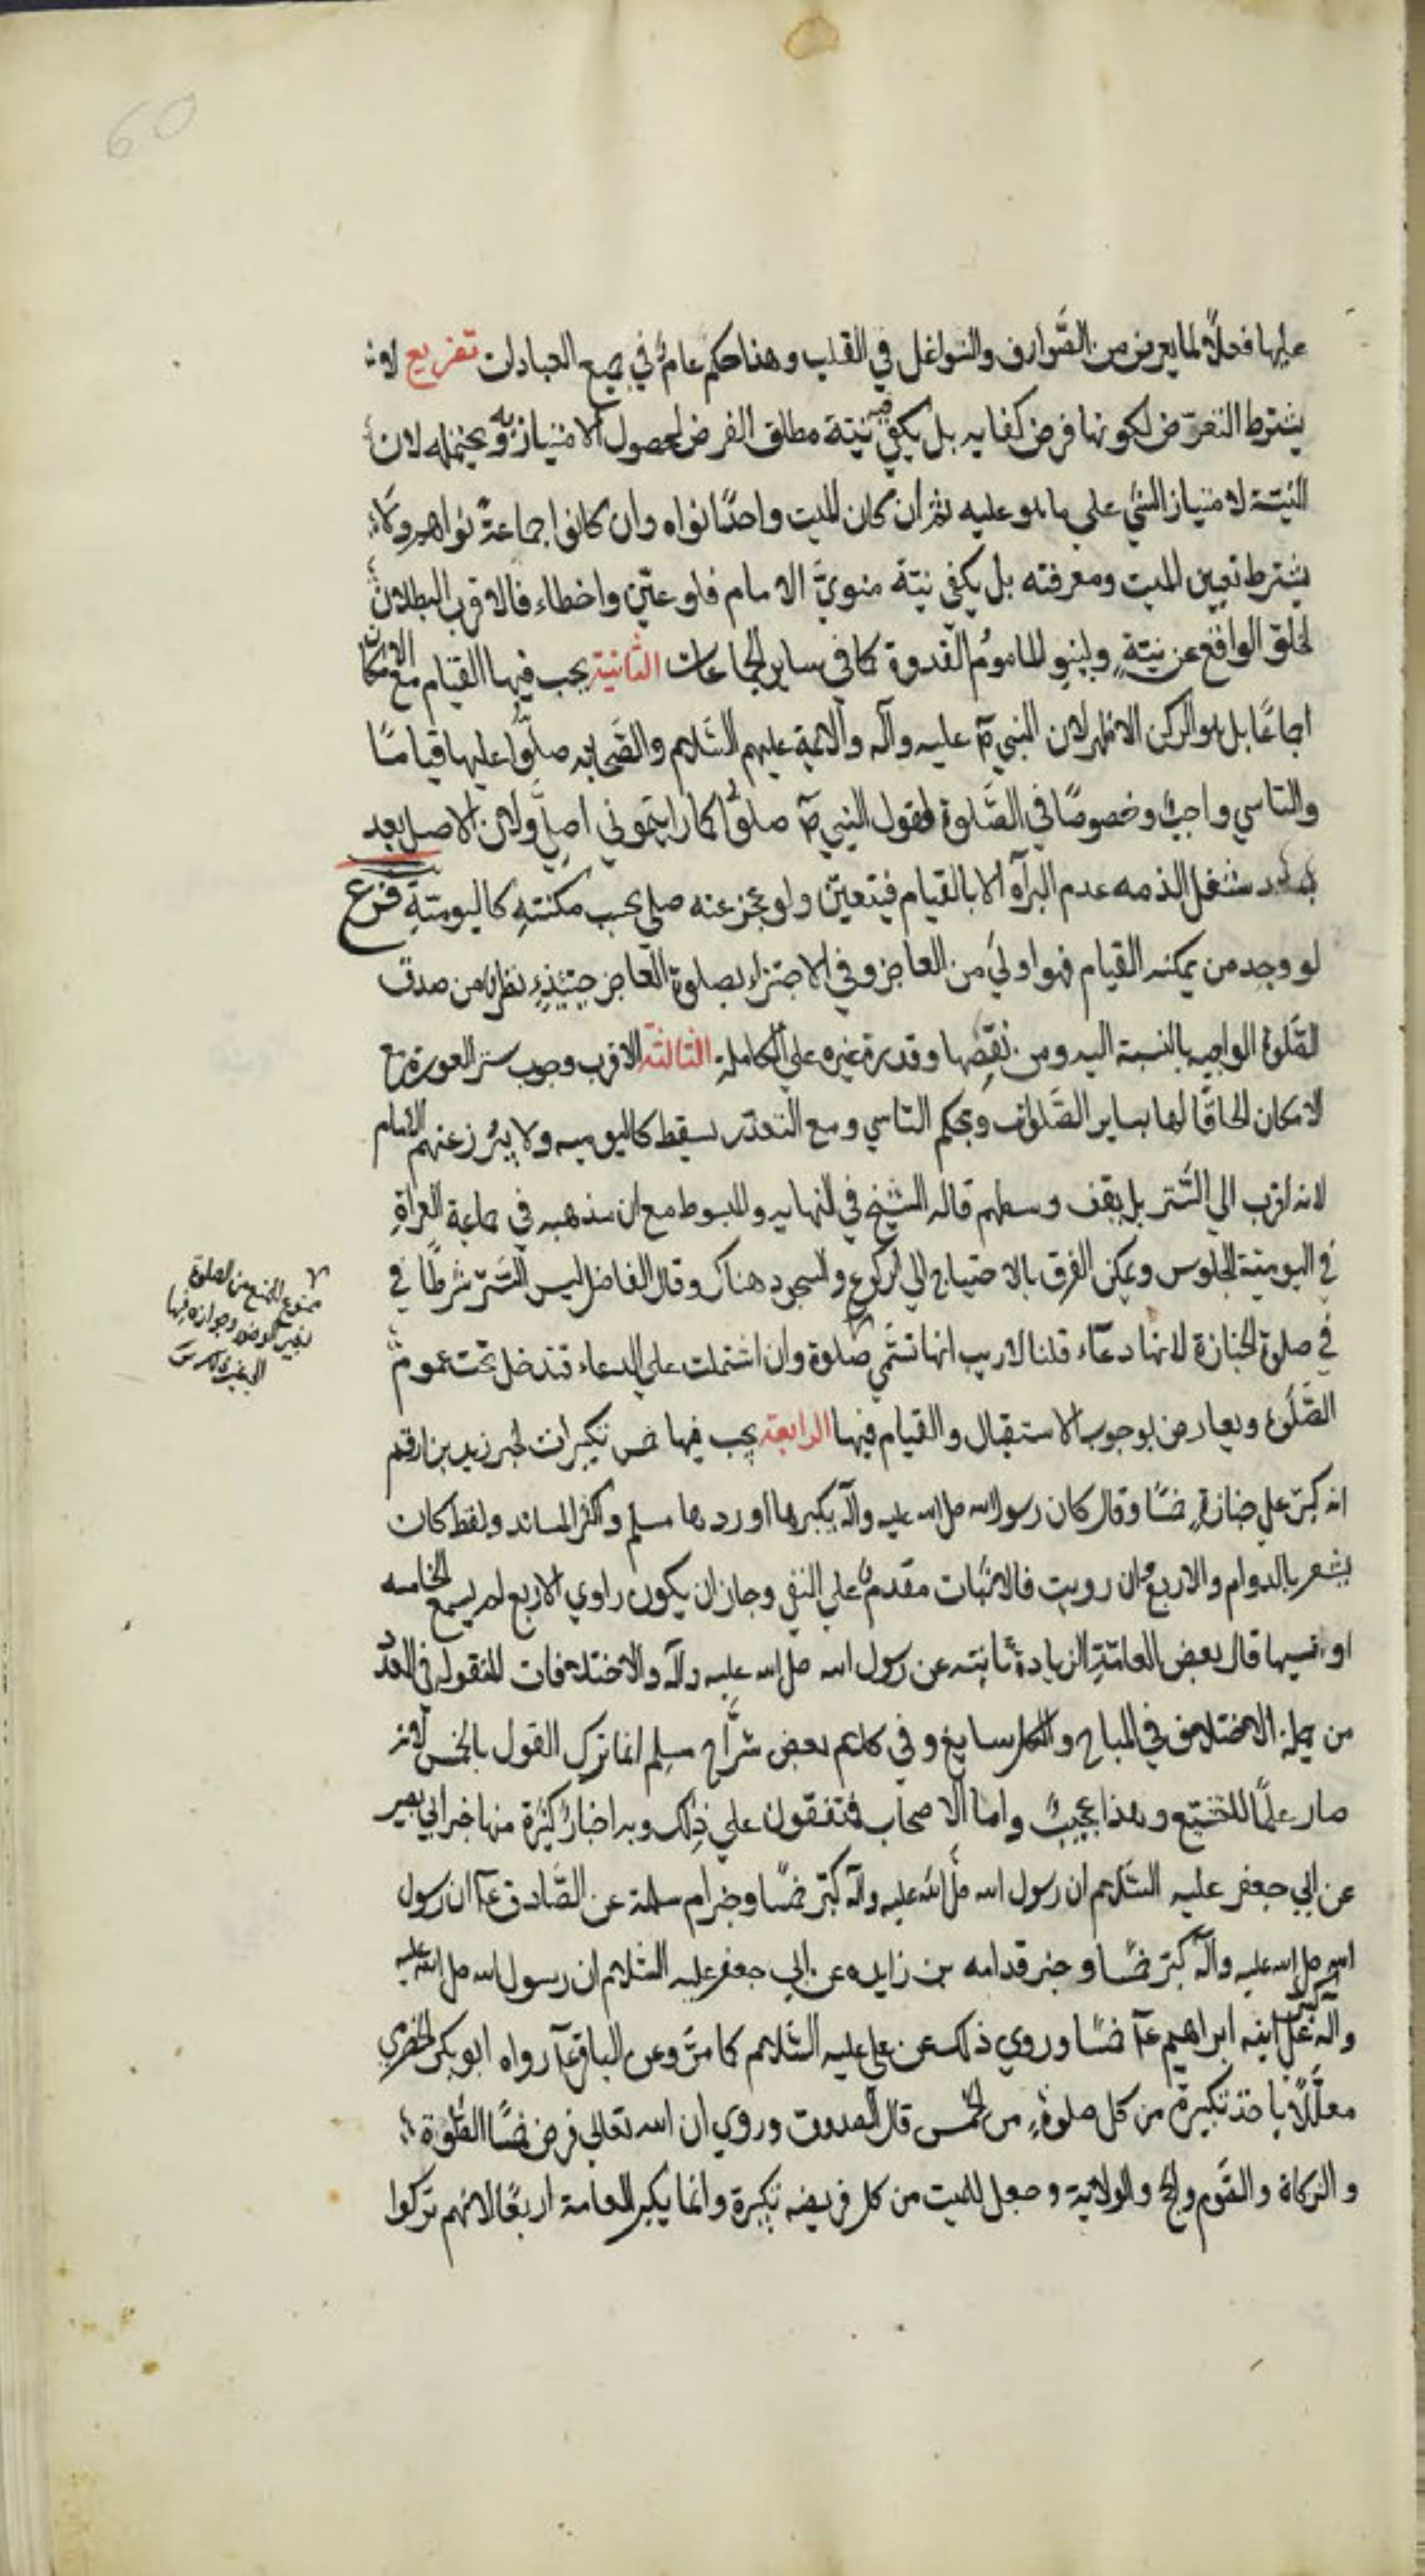 60
عليها فعلاً لما يعرض من الصَّوارف والشواغل في القلب وهذا حكم عامٌ في جميع العبادات تفريع لا
يشترط التعرّض لكونها فرض كفايه بل يكفي نيّة مطلق الفرض لحصول الامتياز به ويحتمله لان
النيّة لامتياز الشي على ما هو عليه ثم ان كان الميت واحدًا نواه وان كانوا جماعةً نواهم ولا
يشترط تعيين الميت ومعرفته بل يكفي نيّة منويّ الامام فلو عيّن واخطاء فالاقرب البطلان
لخلو الواقع عن نيّةٍ ولينو الماموم القدوة كما في ساير الجماعات الثانية يجب فيها القيام مع الامكان
اجماعًا بل هو الركن الاظهر لان النبي ص عليه وآله والائمة عليهم السَّلام والصَّحابه صلّوا عليها قيامًا
والتاسي واجبٌ وخصوصًا في الصَّلوة لقول النبي ص صلوُّا كما رايتموني اصلّي ولان الاصل بعد
شغل الذمه عدم البرآه الا بالقيام فيتعيّن ولو عجز عنه صلى بحسب مكنتهِ كاليوميّةِ فرع
لو وجد من يمكنه القيام فهو اولى من العاجز وفي الاجتزاء بصلوة العاجز حينئذٍ نظرٌ من صدق
الصَّلوة الواجبه بالنسبة اليه ومن نقصِها وقدرة غيره على الكاملة الثالثة الاقرب وجوب ستر العورة مع
الامكان الحاقًا لها بساير الصَّلوات وبحكم التاسي ومع التعذر يسقط كاليوميه ولا يبرُز عنهم الامام
لانه اقرب الى السَّتر بل يقف وسطهم قاله الشيخ في النهايه والمبسوط مع ان مذهبه في جماعة العراةِ
في اليوميّة الجلوس ويمكن الفرق بالاحتياج الى الركوع والسجود هناك وقال الفاضل ليس السَّتر شرطًا في
في صلوة الجنازة لانها دعآء قلنا لا ريب انها تسَّمي صلوة وان اشتملت على الدعاء فتدخل تحت عموم
الصَّلوة ويعارض بوجوب الاستقبال والقيام فيها الرابعة يجب فيها خمس تكبيرات لخبر زيد بن ارقم
انه كبّر على جنازةٍ خمسًا وقال كان رسول الله صلى الله عليه وآله يكبرها اوردها مسلم واكثر المساند ولفظ كان
يشعر بالدوام والاربع وان رويت فالاثبات مقدمٌ على النفي وجاز ان يكون راوي الاربع لم يسمع الخامسه
او نسيها قال بعض العامّة الزيادة ثابته عن رسول الله صلى الله عليه وآله والاختلافات المنقوله في العدد
من جملة الاختلاف في المباح والكل سايغ وفي كلام بعض شُرّاح مسلم انما ترك القول بالخمس لانه
صار علمًا للتشيّع وهذا عجيبٌ واما الاصحاب فمتفقون على ذلك وبه اخبارٌ كثيرة منها خبر ابي بصير
عن ابي جعفر عليه السَّلام ان رسول الله صلى الله عليه وآله كبّر خمسًا وخبر ام سلمة عن الصَّادق ع ان رسول
الله صلى الله عليه وآله كبّر خمسًا وخبر قدامه بن زايده عن ابي جعفر عليه السَّلام ان رسول الله صلى الله عليه
وآله كبّر على ابنه ابراهيم ع خمسًا وروي ذلك عن علي عليه السَّلام كما مرّ وعن الباقر ع رواه ابو بكر الحضرمي
معلَّلاً باخذ تكبيرة من كل صلوةٍ من الخمس قال الصدوق وروي ان الله تعالى فرض خمسًا الصَّلوة
والزكاة والصَّوم والحج والولاية وجعل للميت من كل فريضه تكبيرة وانما يكبر العامة اربعًا لانهم تركوا
ممنوع المنع من الصلوة
بغير الوضو وجوازه فيها